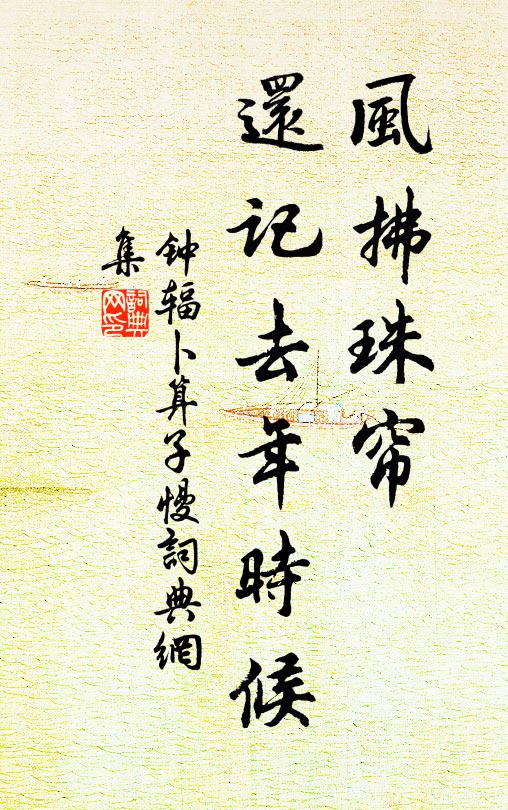 風拂珠帘
還記去年時候
钟辐卜算子慢詞典網
集
詞典
网印